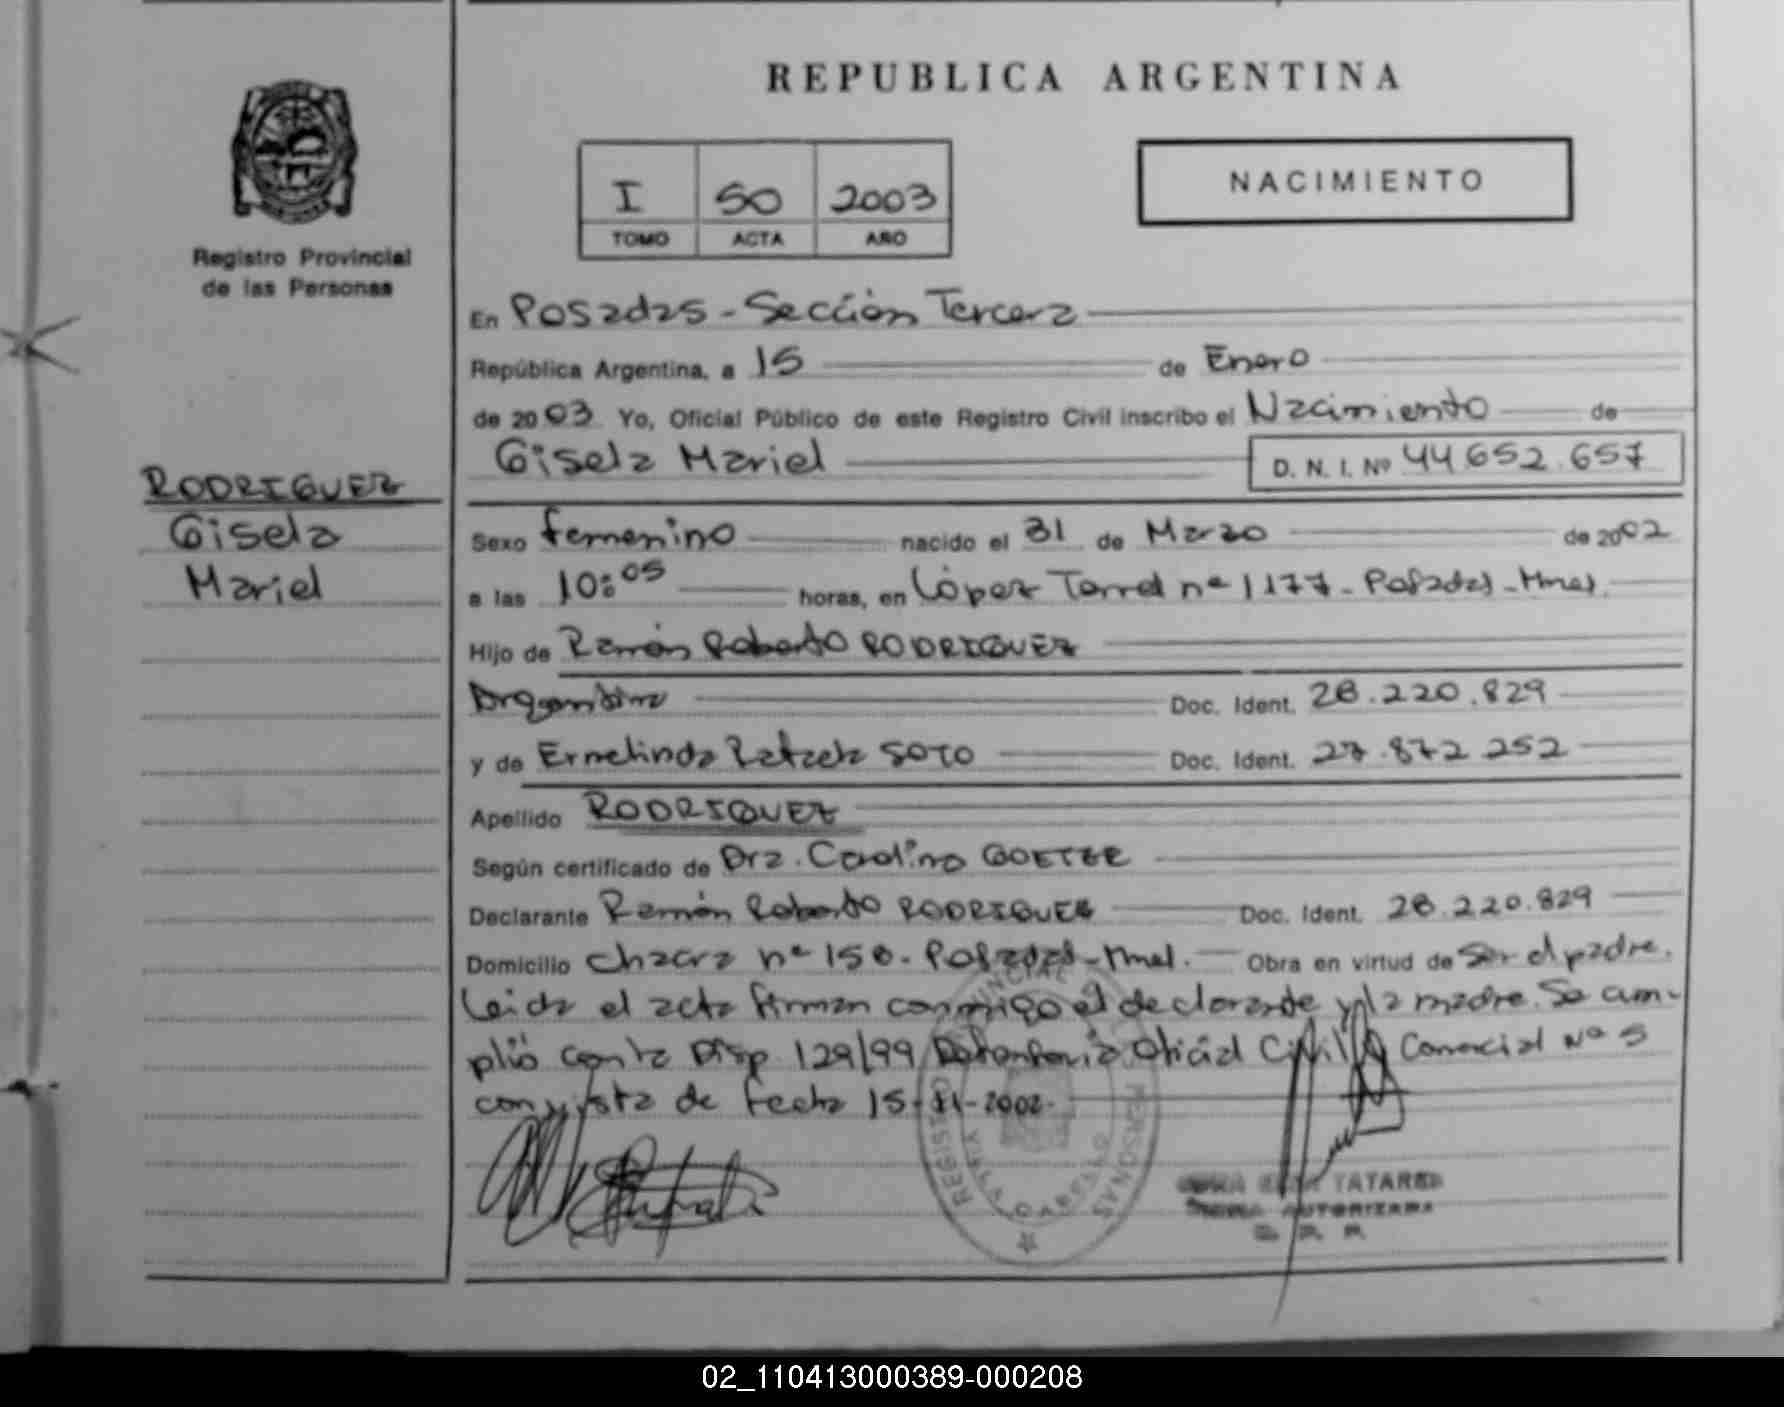 REPUBLICA ARGENTINA
NACIMIENTO
I 50 2003
TOMO ACTA AÑO
Registro Provincial
de las Personas
En Posadas - Sección Tercera
República Argentina, a 15 de Enero
de 2003 Yo, Oficial Público de este Registro Civil inscribo el Nacimiento de
Gisela Mariel D. N. I. Nº 44 652.657
RODRIGUEZ
Gisela
Mariel
Sexo femenino nacido el 31 de Marzo de 2002
a las 10:05 horas, en López Torres nº 1177 - Posadas - Mnes.
Hijo de Ramón Roberto RODRIGUEZ
Argentino Doc. Ident. 28.220.829
y de Ermelinda SOTO Doc. Ident. 27.872 252
Apellido RODRIGUEZ
Según certificado de Dra. Carolina GOETZE
Declarante Ramón Roberto RODRIGUEZ Doc. Ident. 28.220.829
Domicilio Chacra nº 150 - Posadas - Mnes. Obra en virtud de Ser el padre.
Leida el acta firman conmigo el declarante y la madre. Se cum-
plió con la Disp 129/99 Defensoria Oficial Civil y Comercial Nº 5
con vista de fecha 15-11-2002.
REGISTRO PROVINCIAL PERSONAS
TATAREN
FIRMA AUTORIZADA
02_110413000389-000208